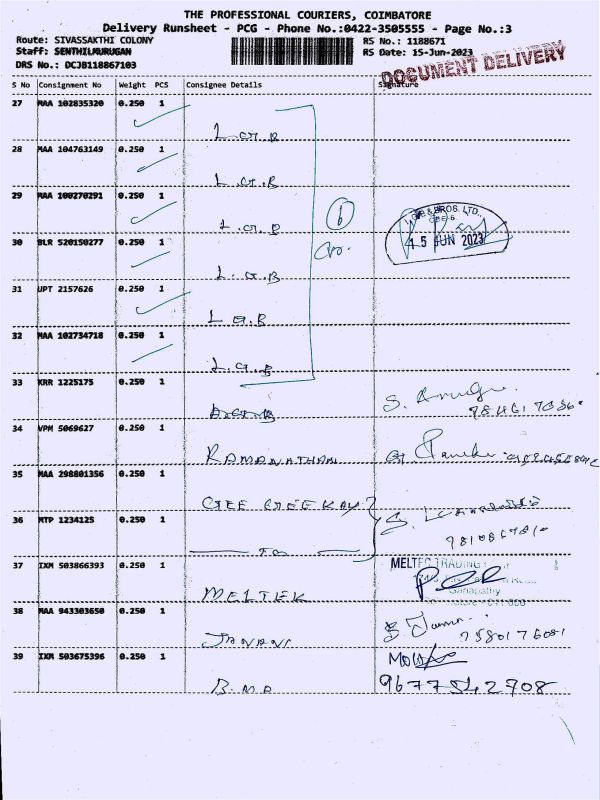 THE PROFESSIONAL COURIERS, COIMBATORE
Delivery Runsheet - PCG - Phone No.:0422-3505555 - Page No.:3
Route: SIVASSAKTHI COLONY RS No.: 1188671
Staff: SENTHILMURUGAN RS Date: 15-Jun-2023
DRS No.: DCJB118867103
DOCUMENT DELIVERY
S No Consignment No Weight PCS Consignee Details Signature
27 MAA 102835320 0.250 1
L.G.B
28 MAA 104763149 0.250 1
L.G.B
29 MAA 100270291 0.250 1
L.G.B
6
& BROS. LTD.,
CBE-6.
15 JUN 2023
30 BLR 520150277 0.250 1
L.G.B
31 UPT 2157626 0.250 1
L G.B
32 MAA 102734718 0.250 1
L.G.B
33 KRR 1225175 0.250 1
S.
34 VPM 5069627 0.250 1
RAMANATHAN
35 MAA 298801356 0.250 1
GEE GEE KAY
36 MTP 1234125 0.250 1
S.
37 IXM 503866393 0.250 1
MELTEK
MELTEC TRADING
Ganapathy
38 MAA 943303650 0.250 1
JANANI
39 IXM 503675396 0.250 1
B.M.P
9677542708